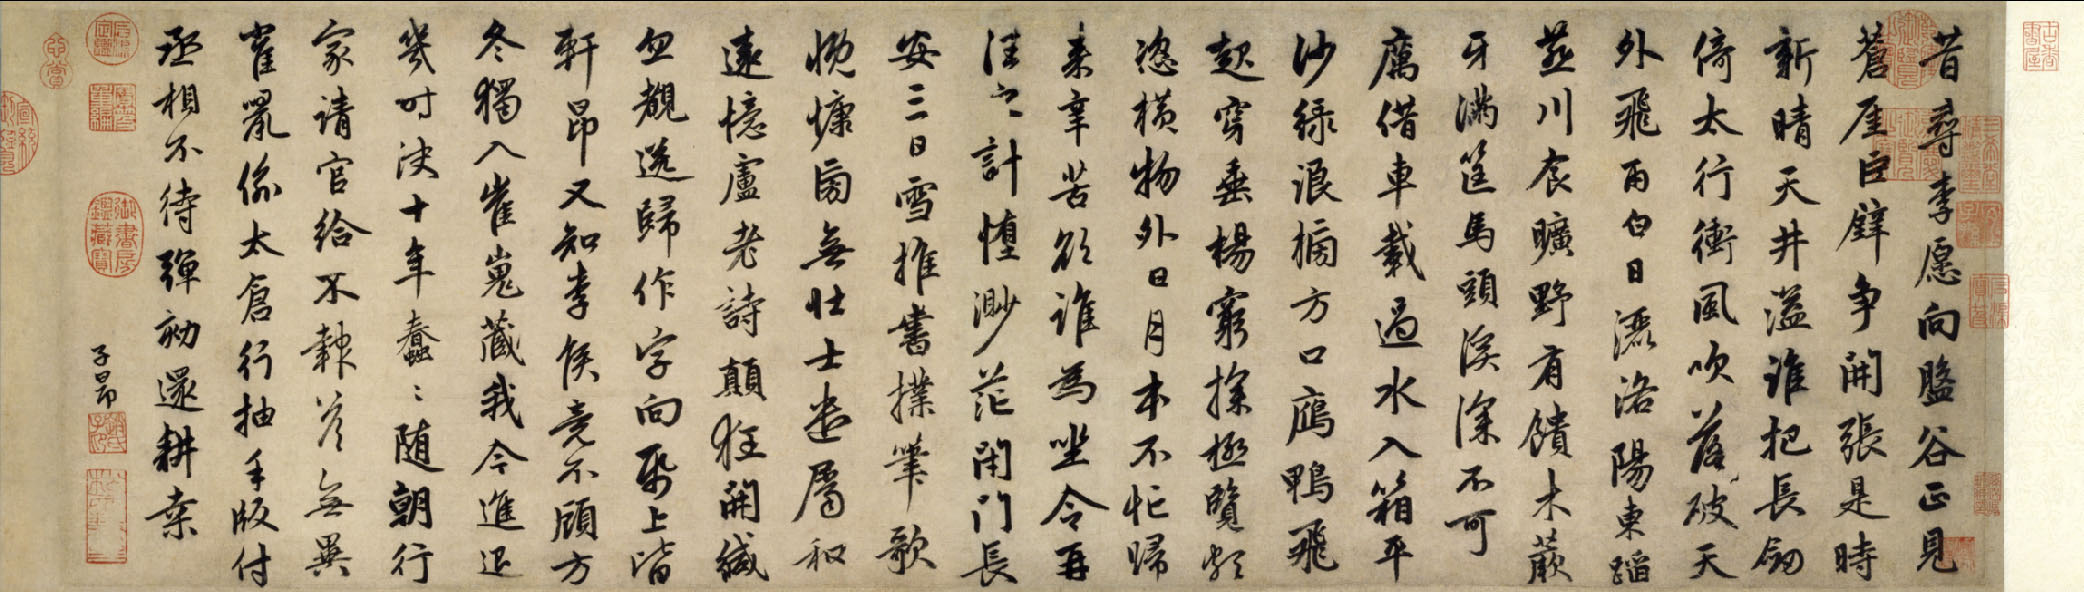 昔尋李愿向盤谷正見
蒼崖巨壁争開張是時
新晴天井溢誰把長劒
倚太行衝風吹落破天
外飛雨白日灑洛陽東蹈
燕川食曠野有饋木蕨
牙滿筐馬頭溪深不可
厲借車載過水入箱平
沙緑浪搒方口鴈鴨飛
起穿垂楊窮探極覽頗
恣横物外日月本不忙歸
来辛苦欲誰為坐令再
往之計墮渺茫閉門長
安三日雪推書撲筆歌
慨慷旁無壮士遣屬和
遠憶盧老詩顛狂開緘
忽覩送歸作字向紙上皆
軒昂又知李侯竟不顧方
冬獨入崔嵬藏我今進退
幾时决十年蠢〻随朝行
家請官給不報答無異
雀鼠偷太倉行抽手版付
丞相不待彈劾還耕桒
子昂
御書房鑑藏寶